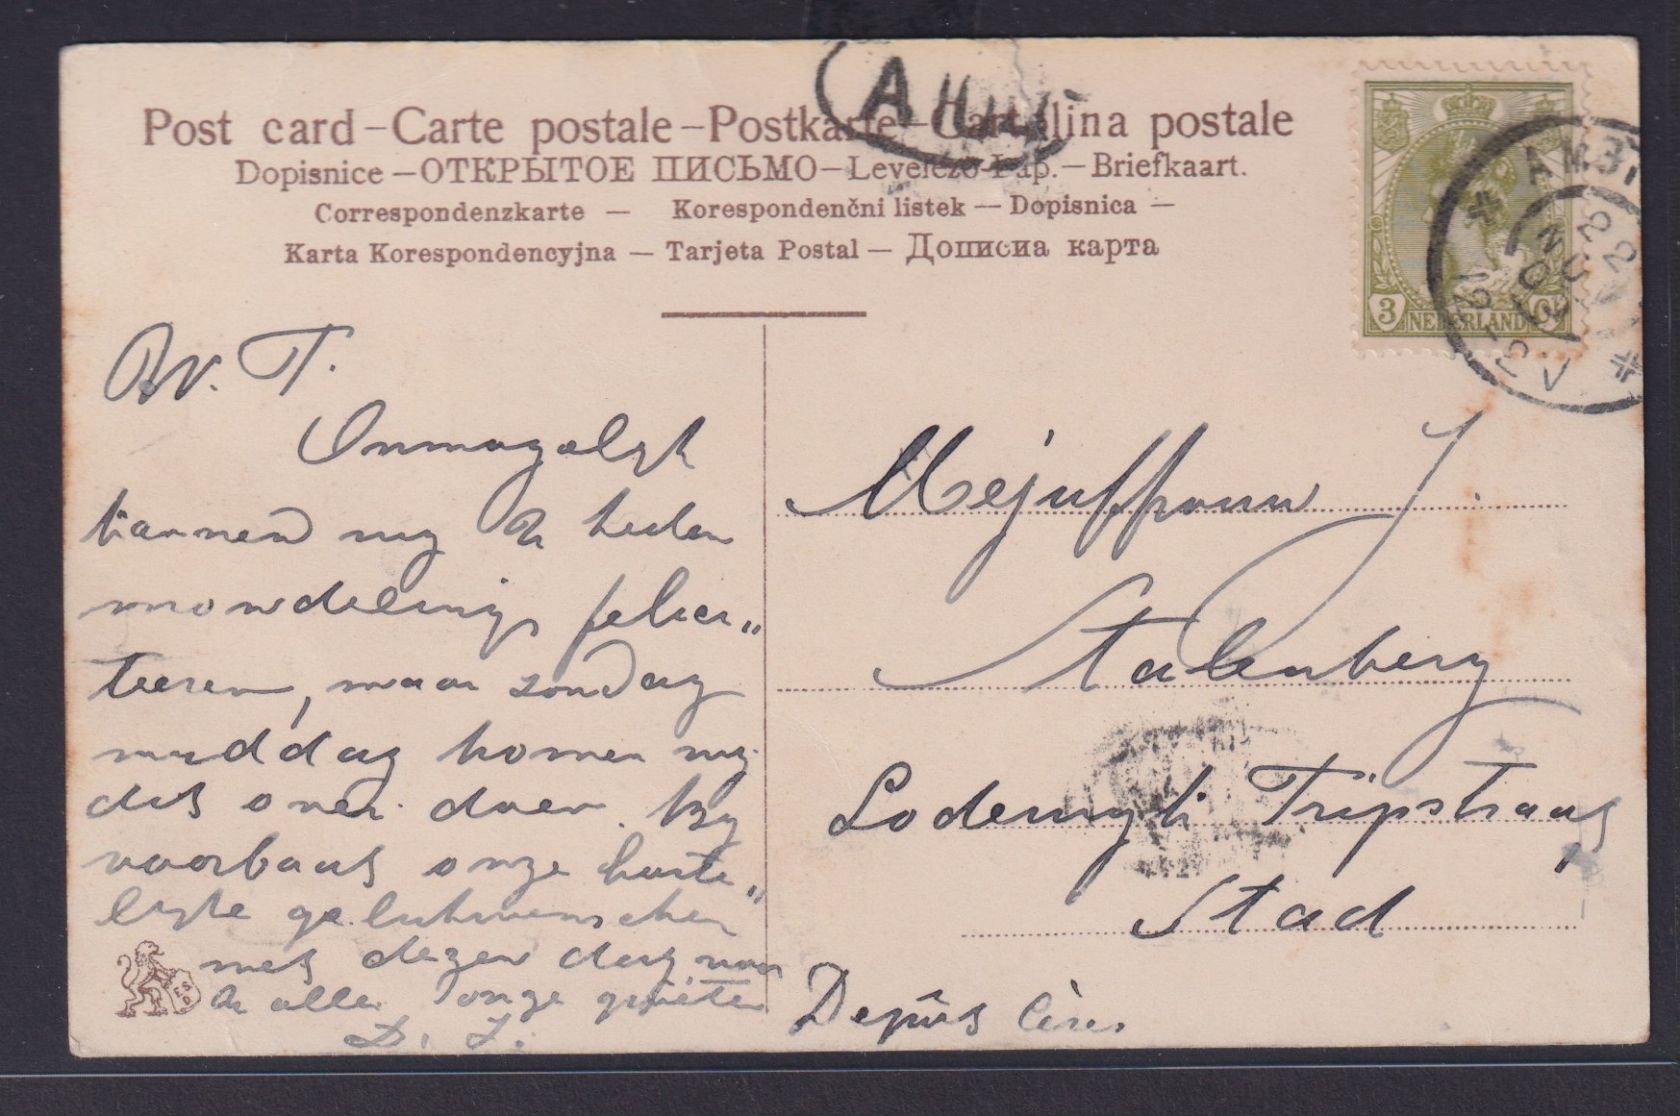 Post card – Carte postale – Postkarte – Cartolina postale
Dopisnice – ОТКРЫТОЕ ПИСЬМО – Levelező-Lap. – Briefkaart.
Correspondenzkarte – Korespondenčni listek – Dopisnica –
Karta Korespondencyjna – Tarjeta Postal – Дописна карта
A
3 NEDERLAND Ct
AMST
22
NOV
Onmogelyk
kunnen wy U heden
mondeling felici„
teeren, maar zondag
middag komen wy
dit even doen. By
voorbaat onze harte„
lyke gelukwenschen
met dezen dag, voor
U allen onze groeten
D. L.
Mejuffrouw J.
Stalenberg
Lodewyk Tripstraat
Stad
ESD